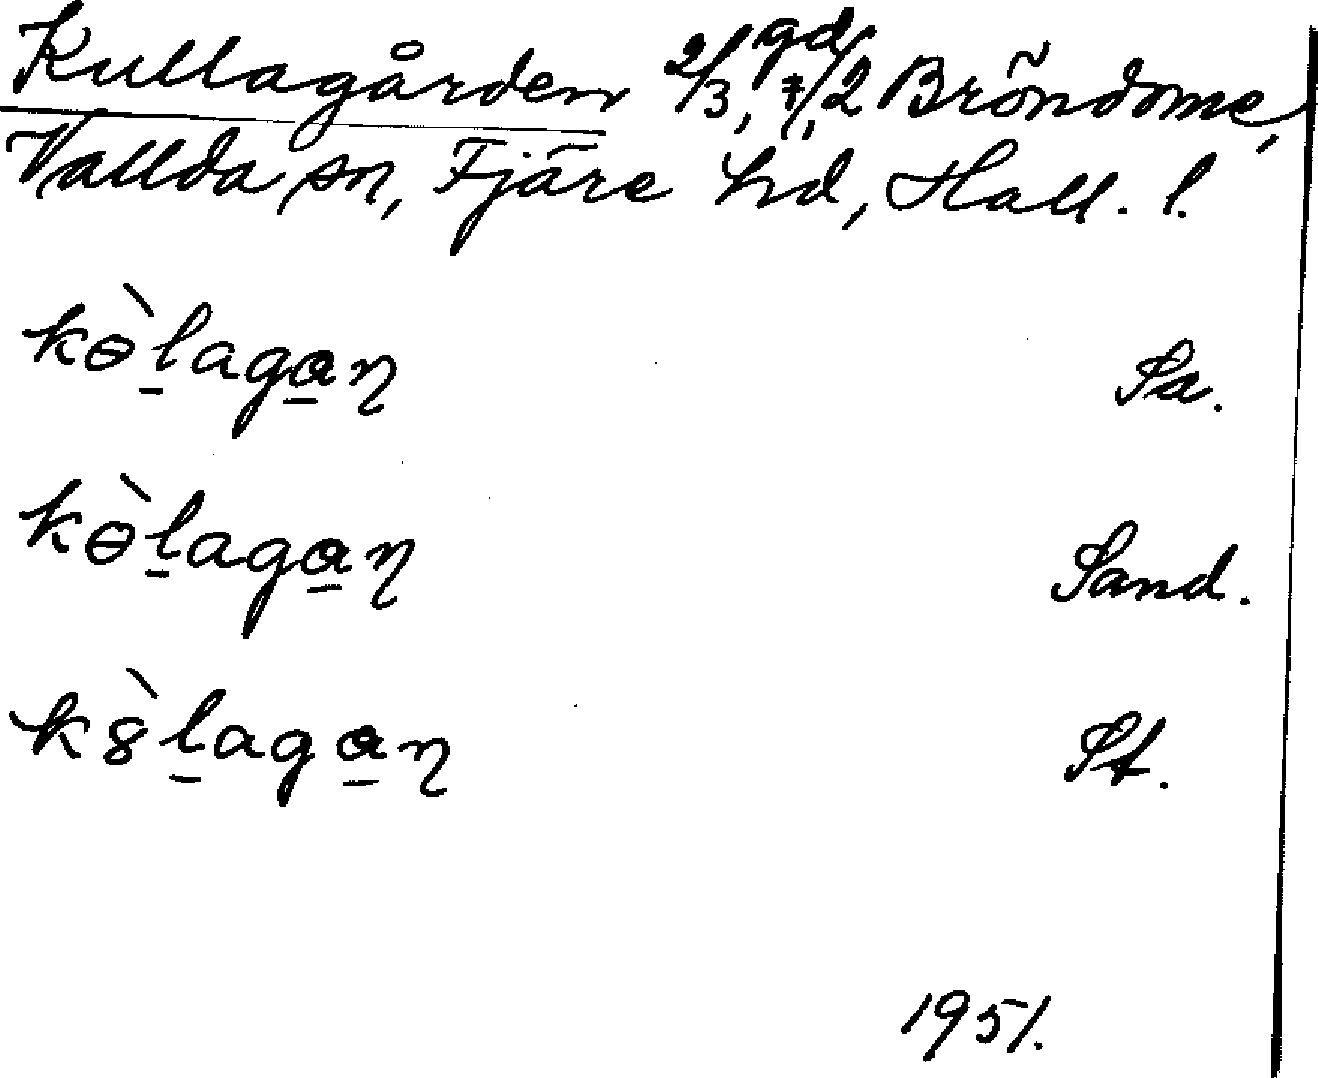 Kullagården 2/3, gd 7/, 2 Bröndome,
Vallda sn, Fjäre hd, Hall. l.
kɵ̀l̠aga̠n Sa.
kɵ̀l̠aga̠n Sand.
k8̀l̠aga̠n St.
1951.